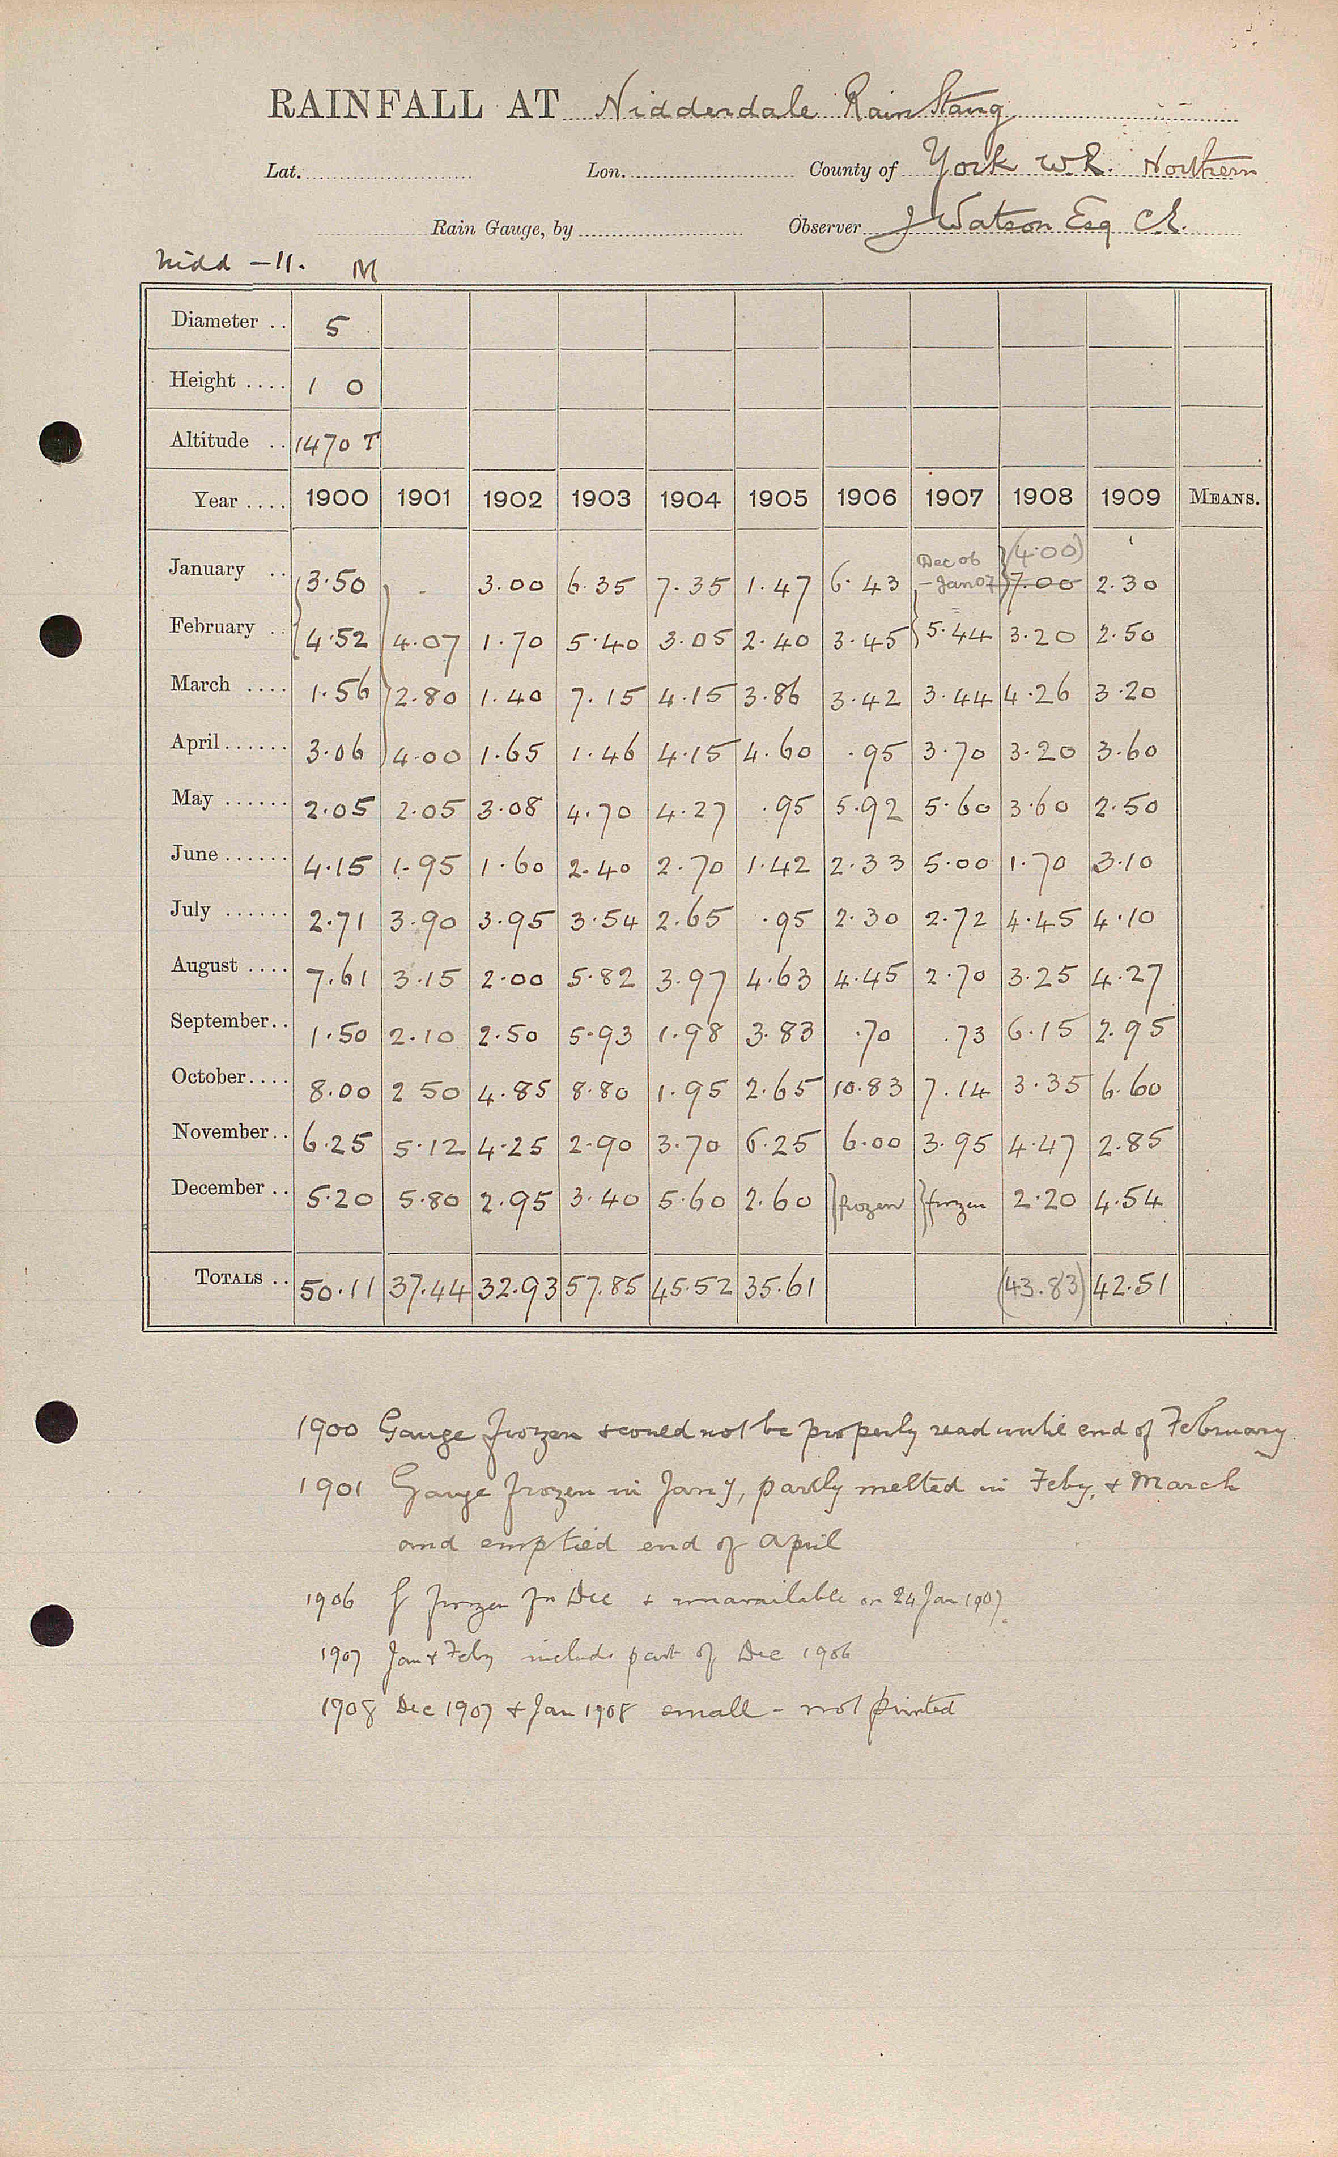 RAINFALL AT Nidderdale Rain Stang
Lat. Lon. County of York W.R. Northern
Rain Gauge, by Observer J Watson Esq C.E.
Nidd - 11. M
Diameter .. 5
Height .... 1 0
Altitude .. 1470 T
Year .... 1900 1901 1902 1903 1904 1905 1906 1907 1908 1909 MEANS.
Dec 06 (4.00)
January .. 3.50 - 3.00 6.35 7.35 1.47 6.43 -Jan 07 7.00 2.30
February .. 4.52 4.07 1.70 5.40 3.05 2.40 3.45 5.44 3.20 2.50
March .... 1.56 2.80 1.40 7.15 4.15 3.86 3.42 3.44 4.26 3.20
April...... 3.06 4.00 1.65 1.46 4.15 4.60 .95 3.70 3.20 3.60
May ...... 2.05 2.05 3.08 4.70 4.27 .95 5.92 5.60 3.60 2.50
June...... 4.15 1.95 1.60 2.40 2.70 1.42 2.33 5.00 1.70 3.10
July ...... 2.71 3.90 3.95 3.54 2.65 .95 2.30 2.72 4.45 4.10
August .... 7.61 3.15 2.00 5.82 3.97 4.63 4.45 2.70 3.25 4.27
September.. 1.50 2.10 2.50 5.93 1.98 3.83 .70 .73 6.15 2.95
October.... 8.00 2 50 4.85 8.80 1.95 2.65 10.83 7.14 3.35 6.60
November.. 6.25 5.12 4.25 2.90 3.70 6.25 6.00 3.95 4.47 2.85
December .. 5.20 5.80 2.95 3.40 5.60 2.60 frozen frozen 2.20 4.54
TOTALS .. 50.11 37.44 32.93 57.85 45.52 35.61 (43.83) 42.51
1900 Gauge frozen & could not be properly read until end of February
1901 Gauge frozen in Jany, partly melted in Feby, & March
and emptied end of April
1906 G frozen in Dec & unavailable on 24 Jan 1907.
1907 Jan & Feby include part of Dec 1906
1908 Dec 1907 & Jan 1908 small - not printed